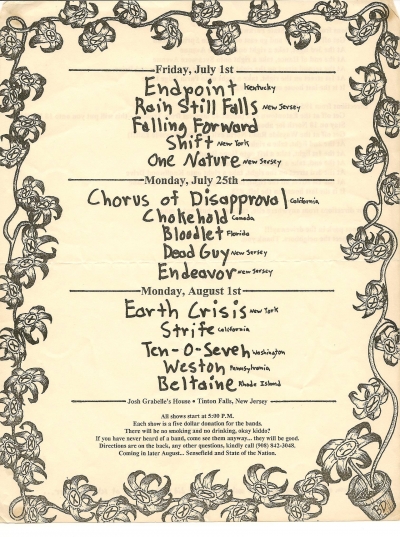 Friday, July 1st
Endpoint Kentucky
Rain Still Falls New Jersey
Falling Forward
Shift New York
One Nature New Jersey
Monday, July 25th
Chorus of Disapproval California
Chokehold Canada
Bloodlet Florida
Dead Guy New Jersey
Endeavor New Jersey
Monday, August 1st
Earth Crisis New York
Strife California
Ten-O-Seven Washington
Weston Pennsylvania
Beltaine Rhode Island
Josh Grabelle's House • Tinton Falls, New Jersey
All shows start at 5:00 P.M.
Each show is a five dollar donation for the bands.
There will be no smoking and no drinking, okay kiddo?
If you have never heard of a band, come see them anyway... they will be good.
Directions are on the back, any other questions, kindly call (908) 842-3048.
Coming in later August... Sensefield and State of the Nation.